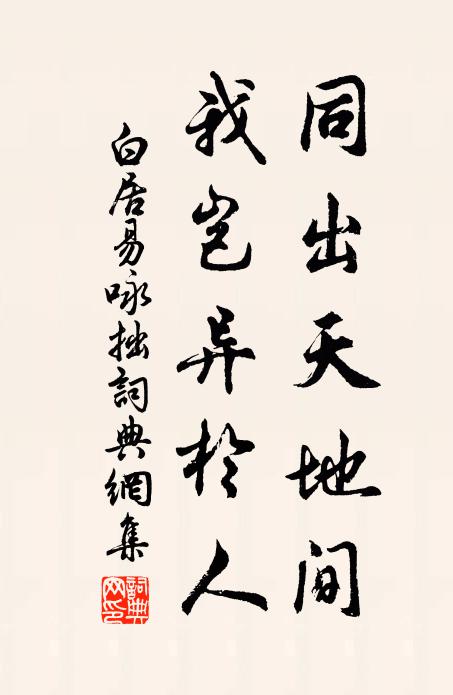 同出天地间
我岂异於人
白居易咏拙詞典網集
詞典
网印